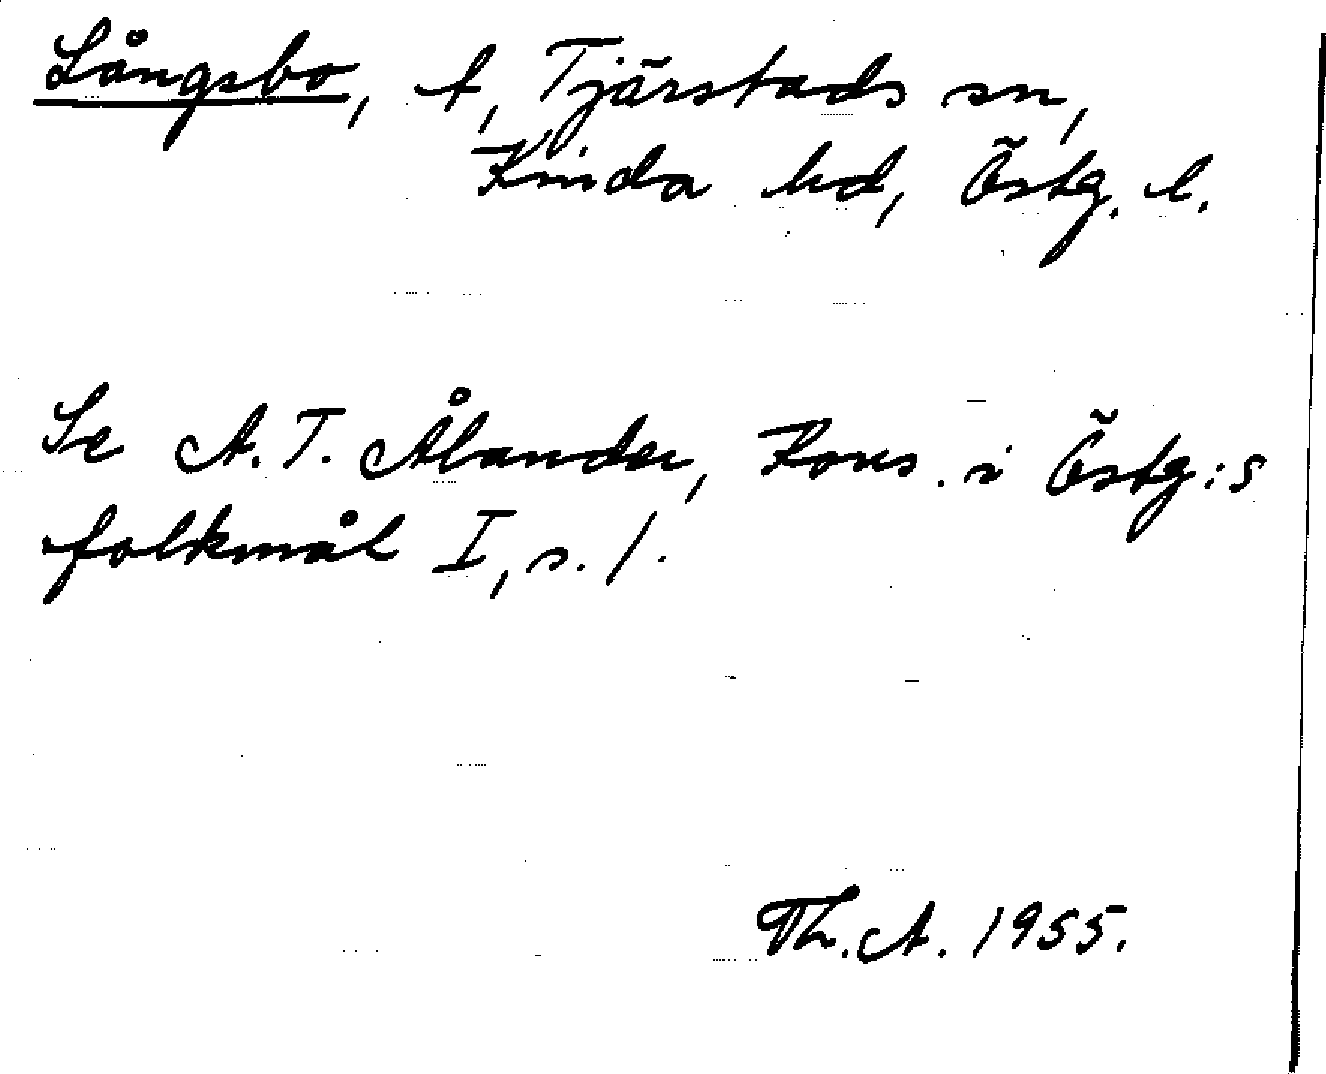 Långsbo, t, Tjärstads sn,
Kinda hd, Östg. l.
Se A.T. Ålander, Kons. i Östg:s
folkmål I, s. 1.
Th. A. 1955.